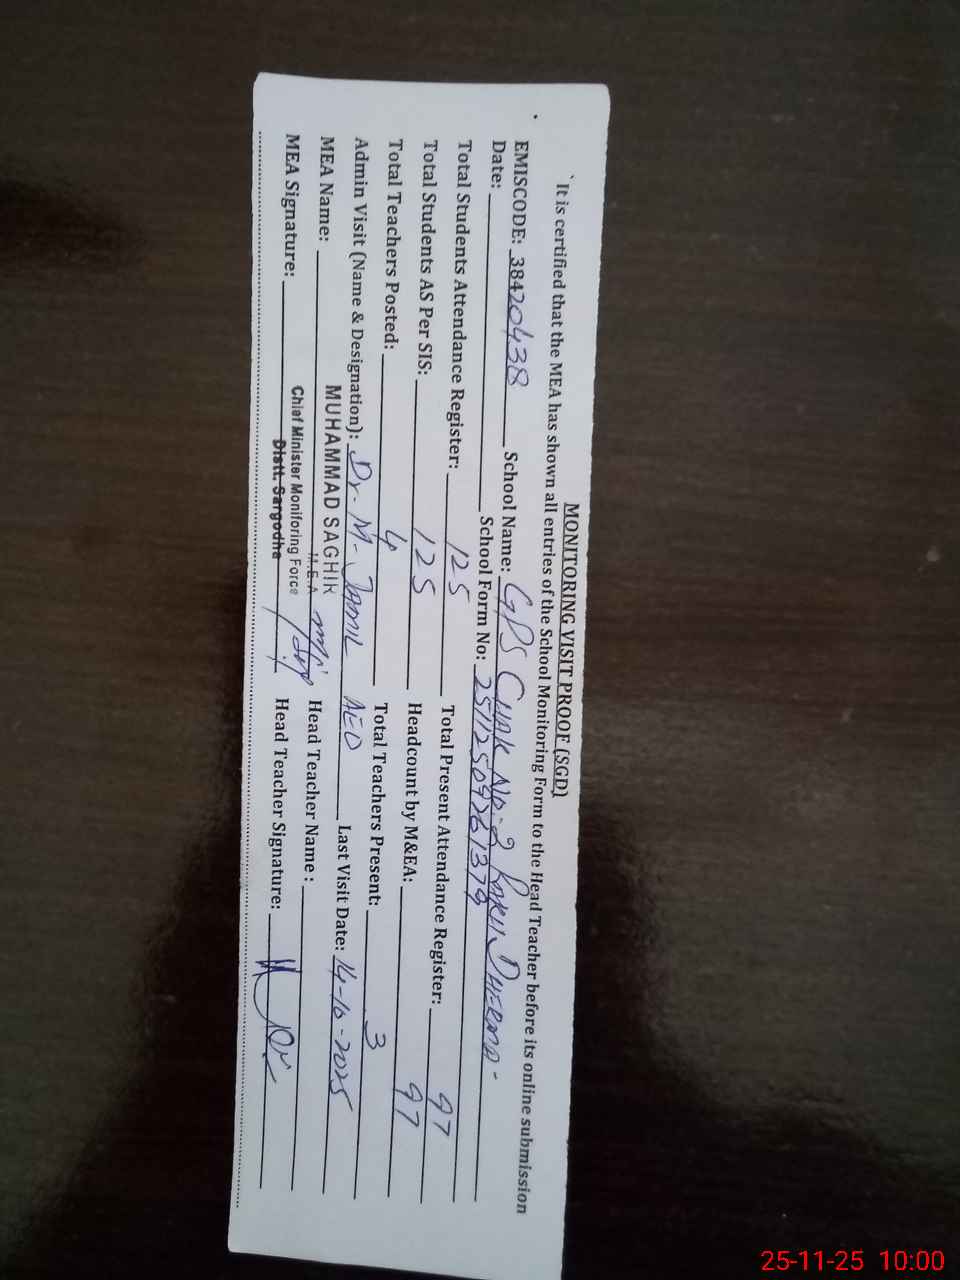 MONITORING VISIT PROOF (SGD)
It is certified that the MEA has shown all entries of the School Monitoring Form to the Head Teacher before its online submission
EMISCODE: 38420438 School Name: GPS Chak No. 2 Dherma -
Date: School Form No: 25112509261379
Total Students Attendance Register: 125 Total Present Attendance Register: 97
Total Students AS Per SIS: 125 Headcount by M&EA: 97
Total Teachers Posted: 4 Total Teachers Present: 3
Admin Visit (Name & Designation): Dr. M. Jamil AEO Last Visit Date: 14-10-2025
MEA Name: MUHAMMAD SAGHIR Head Teacher Name :
M.E.A
Chief Minister Monitoring Force
MEA Signature: Distt. Sargodha Head Teacher Signature:
25-11-25 10:00